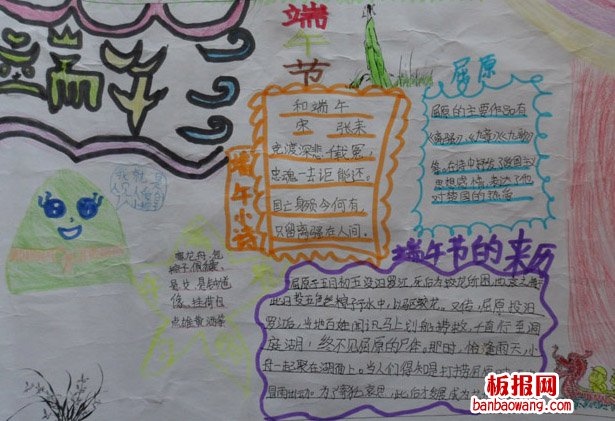 端午
端
午
节
端午小诗
和端午
宋 张耒
竞渡深悲千载冤,
忠魂一去讵能还。
国亡身殒今何有,
只留离骚在人间。
屈原
屈原的主要作品有
《离骚》《九章》《九歌》
等。在诗中抒发了爱国主义
思想感情,表达了他
对楚国的热爱
赛龙舟,包
粽子,佩
是
俗,挂荷包
点雄黄
端午节的来历
屈原于五月初五投汨罗江,死后为蛟龙所困,世人
此日投五色丝粽子于水中,以驱蛟龙。又传,屈原投汨
罗江后,当地百姓闻讯马上划船捞救,一直行至洞
庭湖,终不见屈原的尸体。那时,恰逢雨天,小
舟一起聚在湖面上。当人们得知是打捞
冒雨出动。为了寄托哀思,此后才
板报网
banbaowang.com